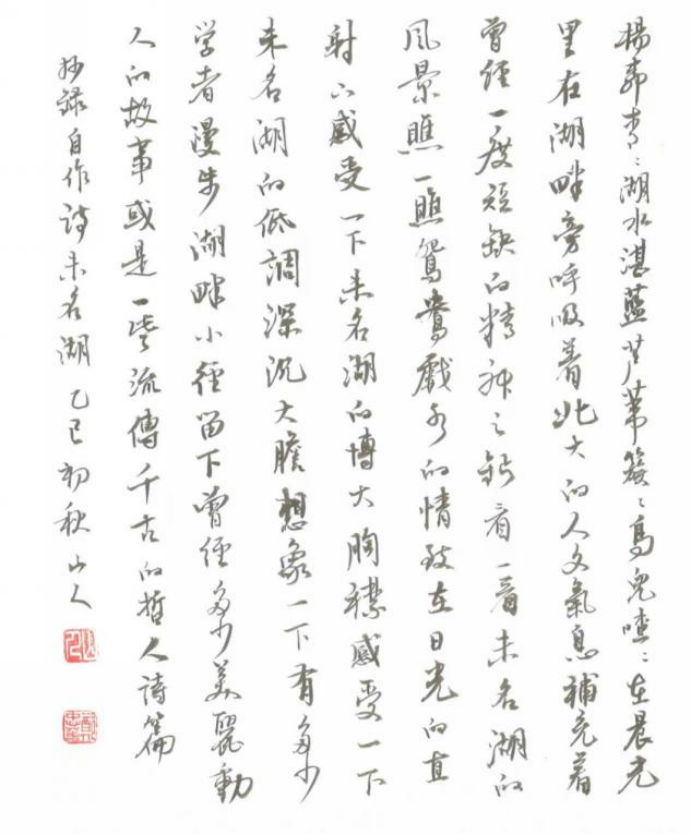 楊柳青〻湖水湛藍芦苇簇〻鳥兒喳〻在晨光
里在湖畔旁呼吸着北大的人文氣息補充着
曾经一度短缺的精神之鈣看一看未名湖的
风景瞧一瞧鴛鴦戲水的情致在日光的直
射下感受一下未名湖的博大胸襟感受一下
未名湖的低調深沉大膽想象一下有多少
学者漫步湖畔小径留下曾经多少美麗動
人的故事或是一些流傳千古的哲人詩篇
抄錄自作詩未名湖乙巳初秋山人